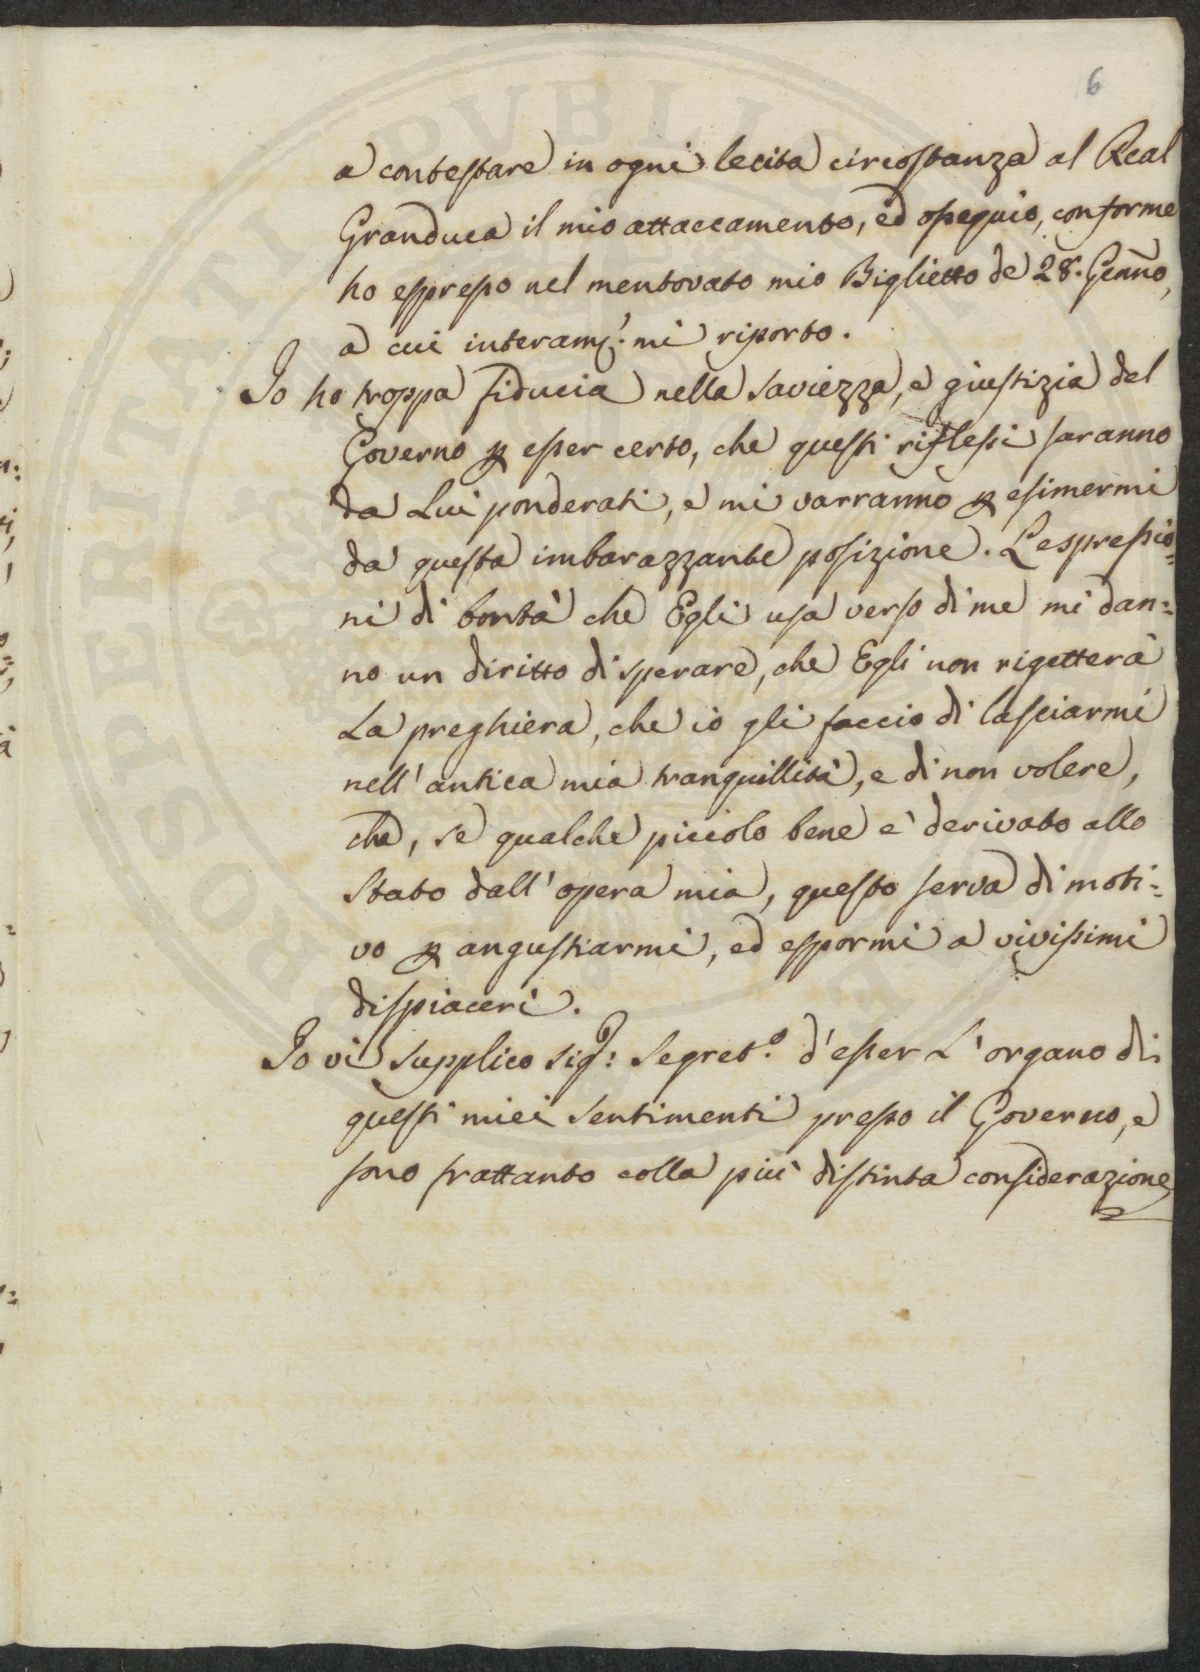 6
a contestare in ogni lecita circostanza al Real
Granduca il mio attaccamento, ed ossequio, conforme
ho espresso nel mentovato mio Biglietto de 28. Genn̄o,
a cui interam.ᵉ mi riporto.
Io ho troppa fiducia nella saviezza, e giustizia del
Governo ꝑ esser certo, che questi riflessi saranno
da Lui ponderati, e mi varranno ꝑ esimermi
da questa imbarazzante posizione. L'espressio-
ni di bontà che Egli usa verso di me mi dan=
no un diritto di sperare, che Egli non rigetterà
La preghiera, che io gli faccio di lasciarmi
nell'antica mia tranquillità, e di non volere,
che, se qualche piccolo bene e' derivato allo
Stato dall'opera mia, questo serva di moti=
vo ꝑ angustiarmi, ed espormi a vivissimi
dispiaceri.
Io vi supplico Sig.ʳ Segret.º d'esser L'organo di
questi miei sentimenti presso il Governo, e
sono frattanto colla più distinta considerazione